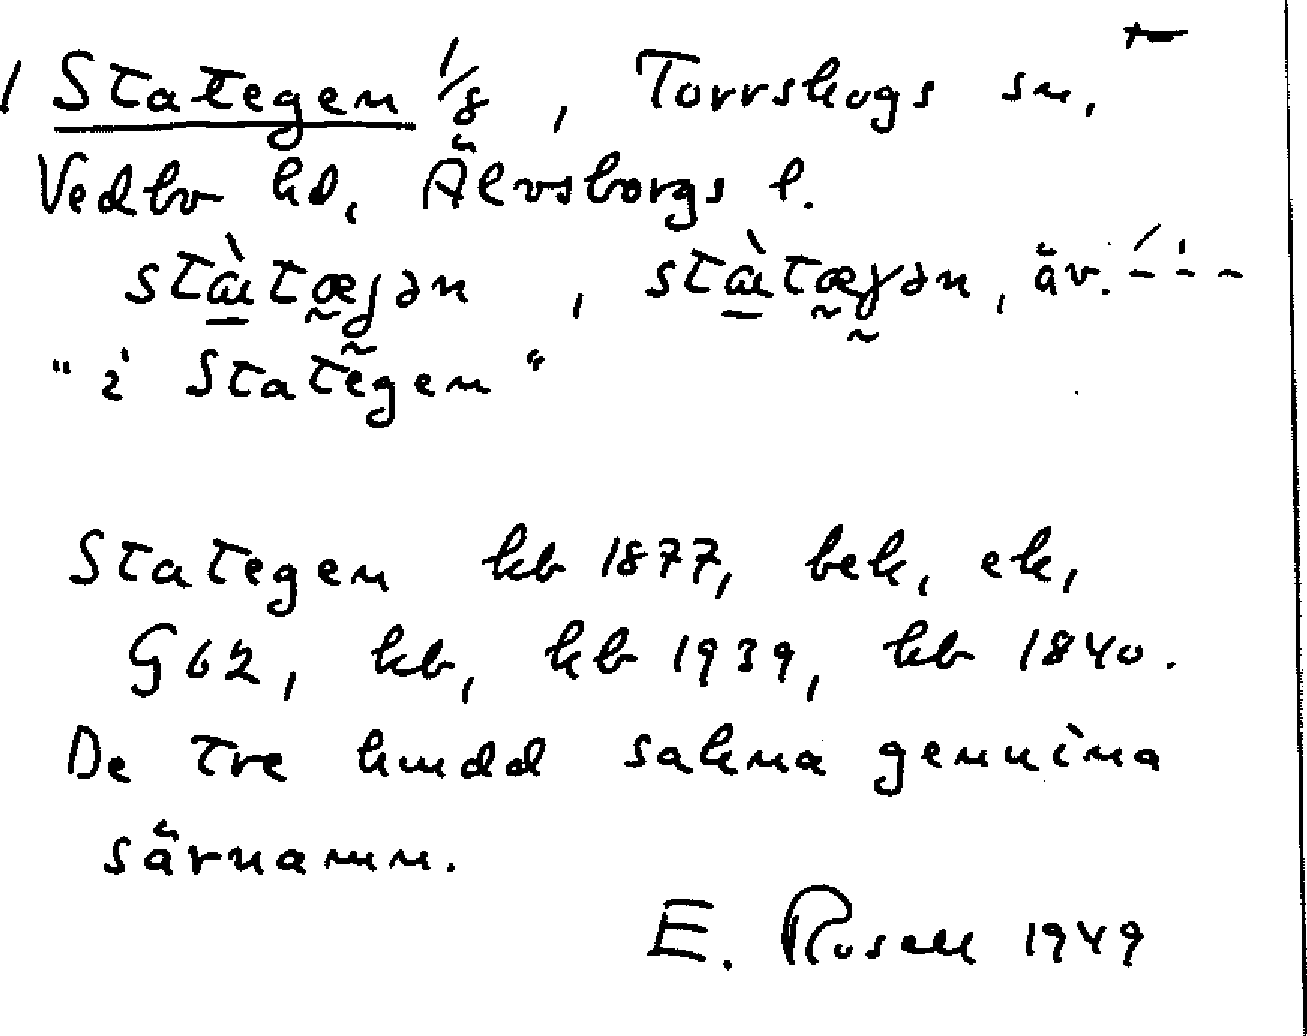 1 Stategen 1/8, Torrskogs sn,
Vedbo hd, Älvsborgs l.
äv.
"i Stategen"
Stategen kb 1877, bek, ek,
G62, kb, hb 1939, kb 1840.
De tre hmdd sakna genuina
särnamn.
E. Rosell 1949